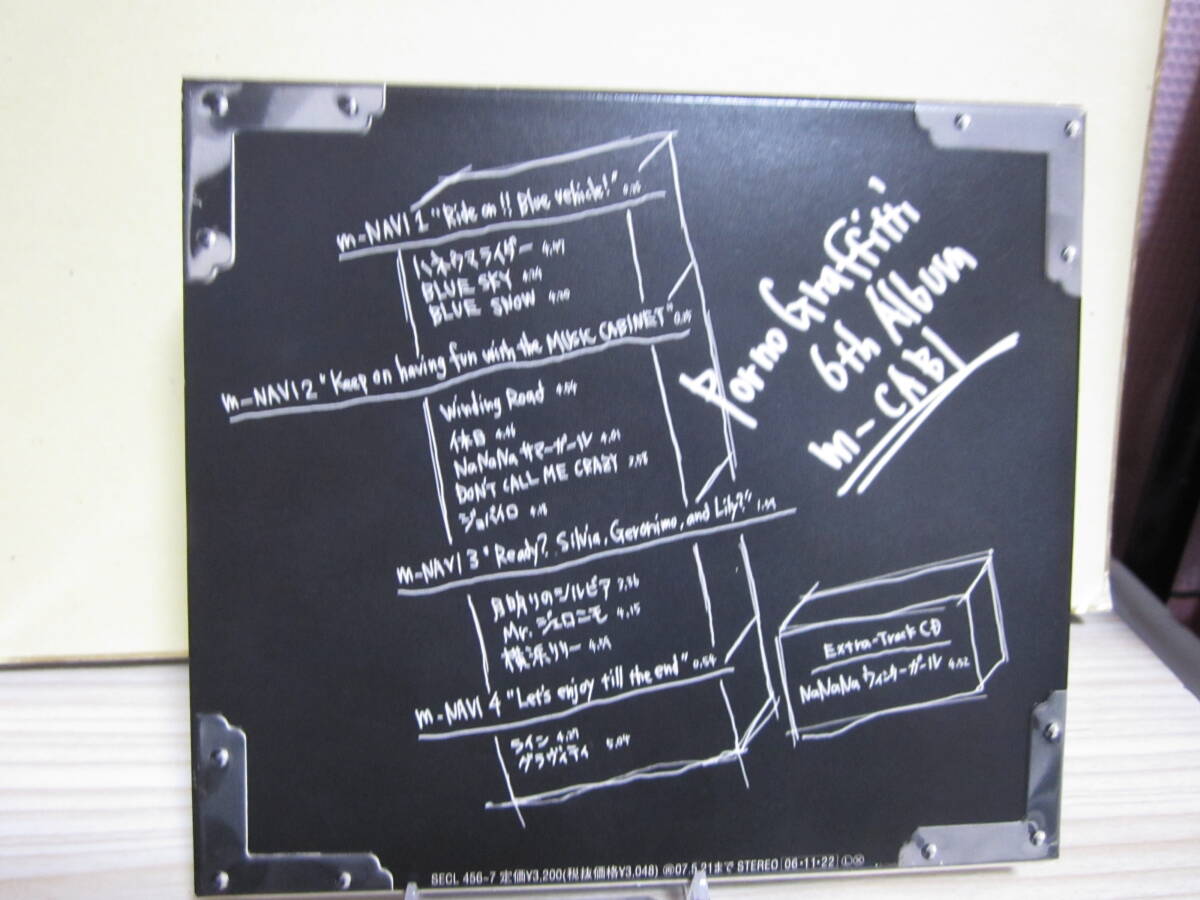 m-NAVI 1 "Ride on!! Blue vehicle!"
ハネウマライダー 4.47
BLUE SKY
BLUE SNOW
m-NAVI 2 "Keep on having fun with the MUSIC CABINET"
Winding Road 4.54
休日
NaNaNa サマーガール 4.01
DON'T CALL ME CRAZY 3.58
ジョバイロ 4.18
m-NAVI 3 "Ready? Silvia, Geronimo, and Lily?"
月明りのシルビア 3.36
Mr. ジェロニモ 4.15
横浜リリー
m-NAVI 4 "Let's enjoy till the end" 0.54
ライン
グラヴィティ 5.04
PornoGraffitti
6th Album
m-CABI
Extra-Track CD
NaNaNa ウィンターガール 4.02
SECL 456-7 定価¥3,200(税抜価格¥3,048) 07.5.21まで STEREO 06・11・22